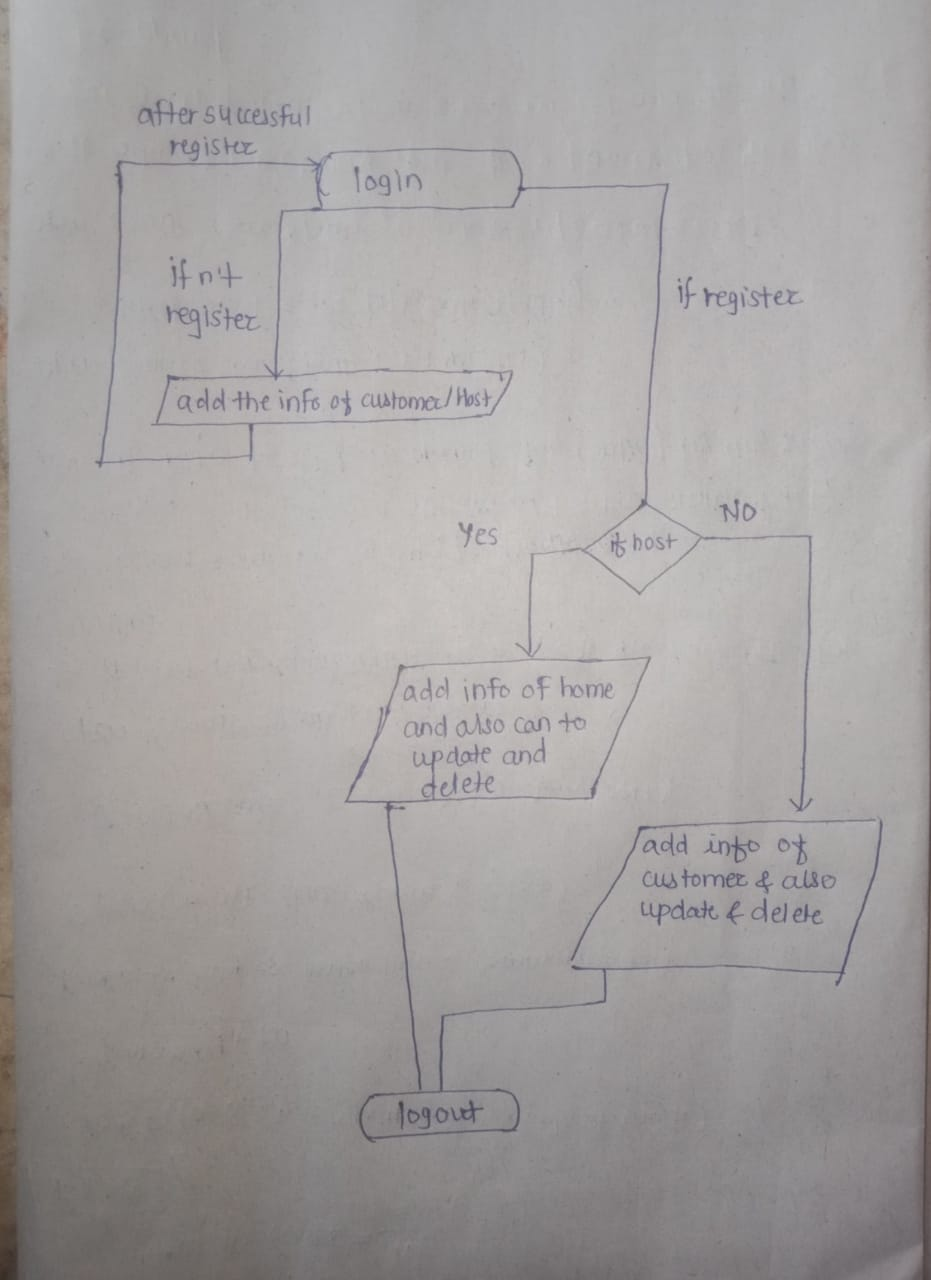 after successful
register
login
if n't
register
if register
add the info of customer/Host
Yes
NO
if host
add info of home
and also can to
update and
delete
add info of
customer & also
update & delete
logout